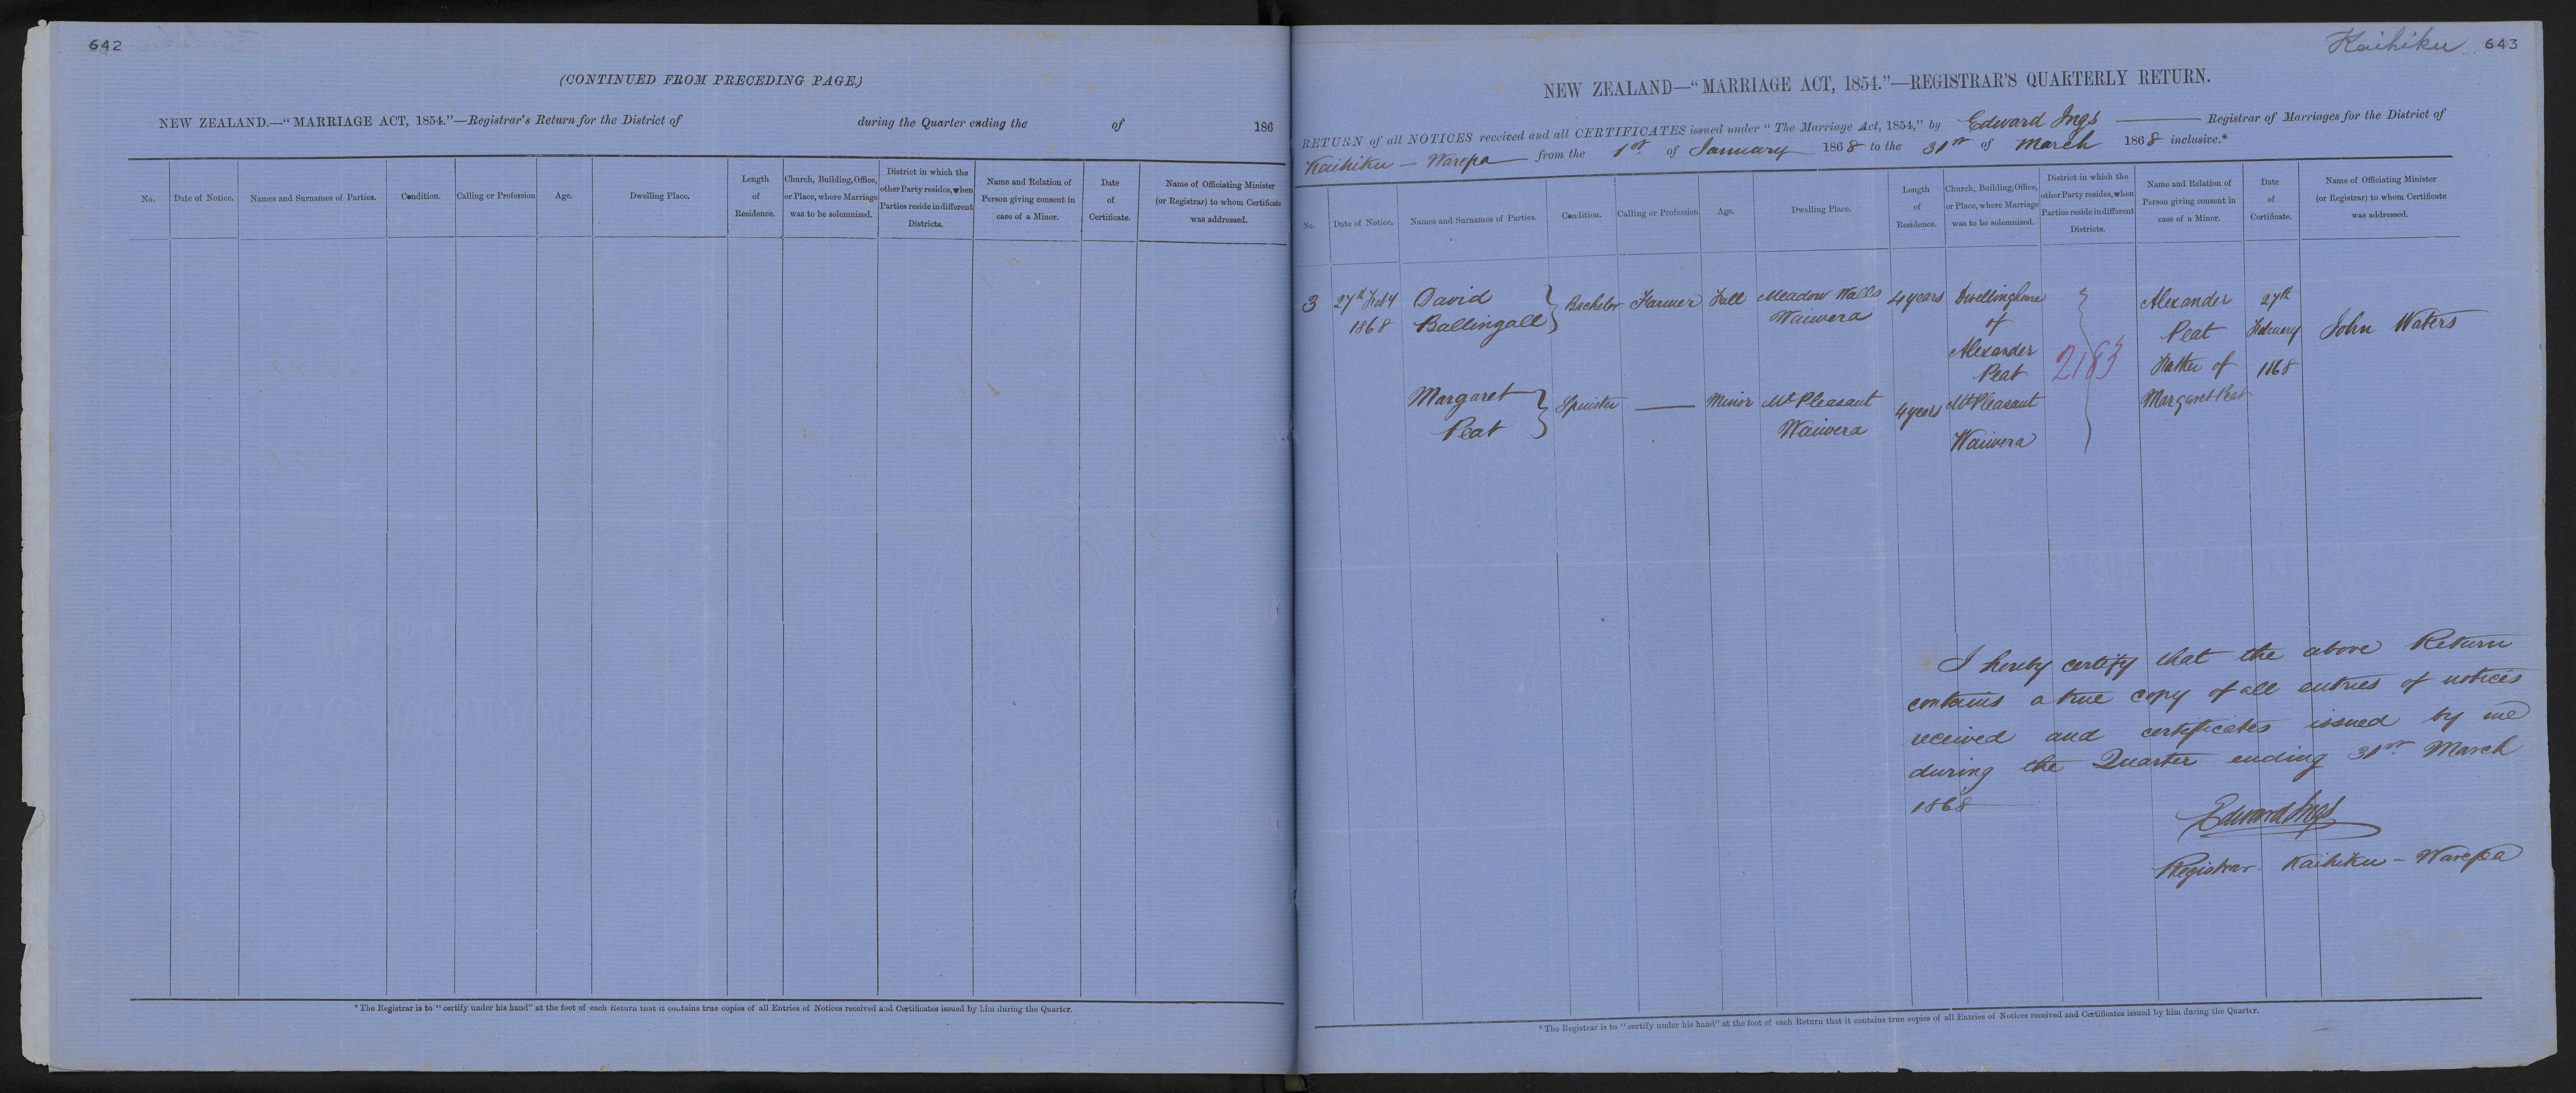 642
(CONTINUED FROM PRECEDING PAGE.)
NEW ZEALAND.—"MARRIAGE ACT, 1854."—Registrar's Return for the District of during the Quarter ending the of 186
No.
Date of Notice.
Names and Surnames of Parties.
Condition.
Calling or Profession
Age.
Dwelling Place.
Length
of
Residence.
Church, Building, Office,
or Place, where Marriage
was to be solemnized.
District in which the
other Party resides, when
Parties reside in different
Districts.
Name and Relation of
Person giving consent in
case of a Minor.
Date
of
Certificate.
Name of Officiating Minister
(or Registrar) to whom Certificate
was addressed.
* The Registrar is to "certify under his hand" at the foot of each Return that it contains true copies of all Entries of Notices received and Certificates issued by him during the Quarter.
Kaihiku 643
NEW ZEALAND—"MARRIAGE ACT, 1854."—REGISTRAR'S QUARTERLY RETURN.
RETURN of all NOTICES received and all CERTIFICATES issued under "The Marriage Act, 1854," by Edward Ings Registrar of Marriages for the District of
Kaihiku - Warepa from the 1st of January 1868 to the 31st of March 1868 inclusive.*
No.
Date of Notice.
Names and Surnames of Parties.
Condition.
Calling or Profession
Age.
Dwelling Place.
Length
of
Residence.
Church, Building, Office,
or Place, where Marriage
was to be solemnized.
District in which the
other Party resides, when
Parties reside in different
Districts.
Name and Relation of
Person giving consent in
case of a Minor.
Date
of
Certificate.
Name of Officiating Minister
(or Registrar) to whom Certificate
was addressed.
3
27th Feby
1868
David
Ballingall
Bachelor
Farmer
Full
Meadow Walls
Waiwera
4 years
Dwellinghouse
of
Alexander
Peat
Mt Pleasant
Waiwera
2183
Alexander
Peat
Father of
Margaret Peat
27th
February
1868
John Waters
Margaret
Peat
Spinster
Minor
Mt Pleasant
Waiwera
4 years
I hereby certify that the above Return
contains a true copy of all entries of notices
received and certificates issued by me
during the Quarter ending 31st March
1868
Edward Ings
Registrar - Kaihiku - Warepa
* The Registrar is to "certify under his hand" at the foot of each Return that it contains true copies of all Entries of Notices received and Certificates issued by him during the Quarter.